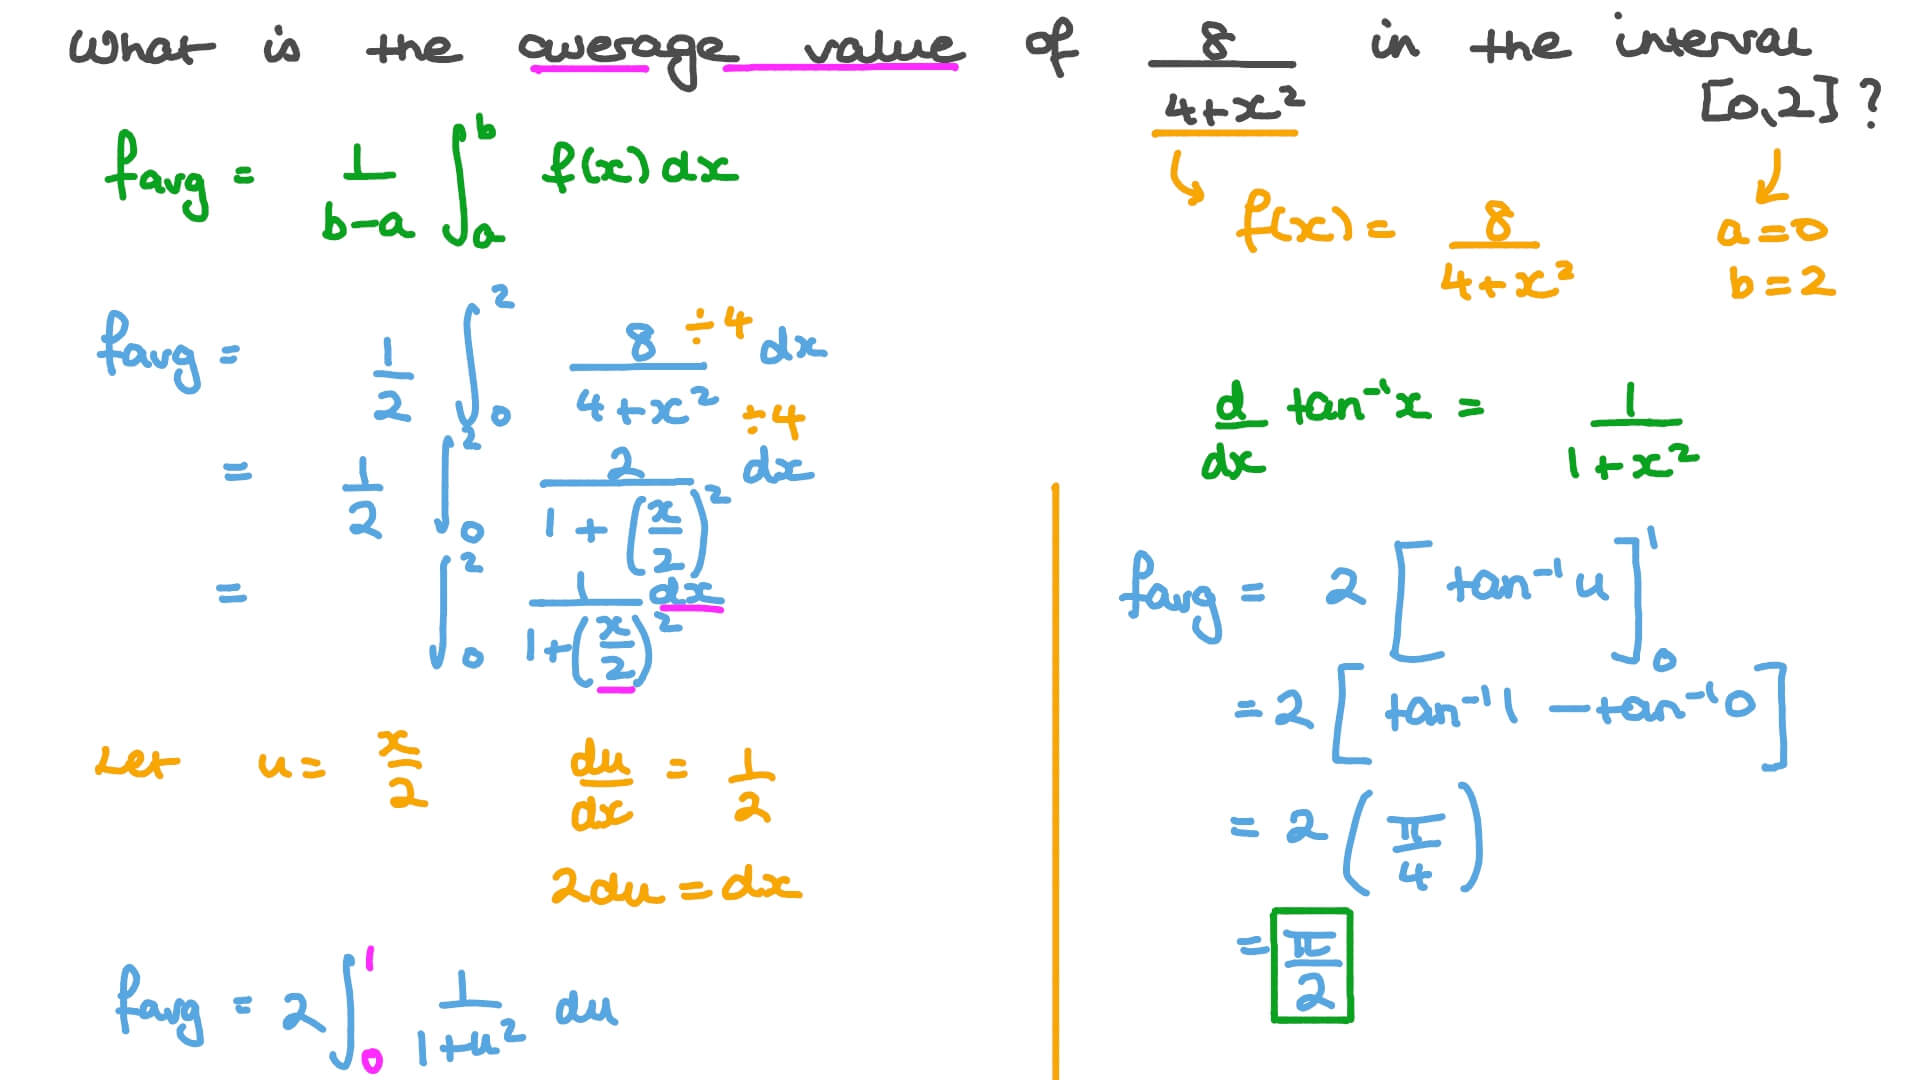 What is the average value of 8/(4+x²) in the interval [0,2]?
f_avg = 1/(b-a) ∫_a^b f(x) dx
f(x) = 8/(4+x²)
a=0
b=2
f_avg = 1/2 ∫_0^2 8/(4+x²) dx
÷4
÷4
= 1/2 ∫_0^2 2/(1+(x/2)²) dx
= ∫_0^2 1/(1+(x/2)²) dx
Let u= x/2
du/dx = 1/2
2du = dx
f_avg = 2 ∫_0^1 1/(1+u²) du
d/dx tan⁻¹x = 1/(1+x²)
f_avg = 2 [tan⁻¹u]_0^1
= 2 [tan⁻¹1 - tan⁻¹0]
= 2 (π/4)
= π/2